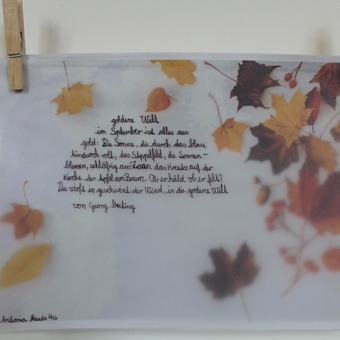 goldene Welt
im September ist alles aus
gold: Die Sonne, die durch das blau
hindurch rollt, das Stoppelfeld, die Sonnen-
blumen, schläfrig am Zaun das Kreuz auf der
Kirche der Apfel am Baum. Ob er hält ob er fällt?
Da wirft in geschwind der Wind, in die goldene Welt
von Georg Britting
Antonia 4c